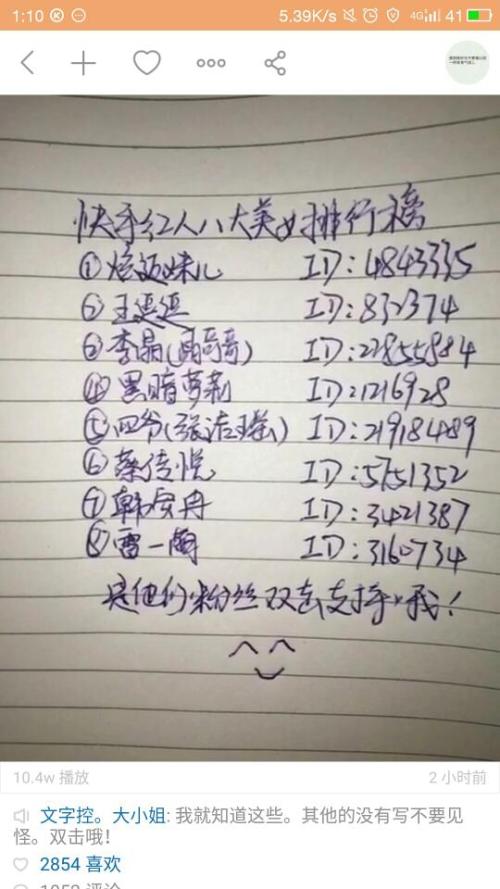 1:10
5.39K/s 4G 41
快手红人八大美女排行榜
①痞妹儿 ID:4843335
②王逗逗 ID:832374
③李晶(晶哥哥) ID:22855884
④黑暗萝莉 ID:1216928
⑤四爷() ID:219184489
⑥蔡传悦 ID:5751352
⑦韩安冉 ID:3421387
⑧雷一 ID:3160734
是他们粉丝双击支持我!
10.4w 播放 2 小时前
文字控。大小姐: 我就知道这些。其他的没有写不要见
怪。双击哦!
2854 喜欢